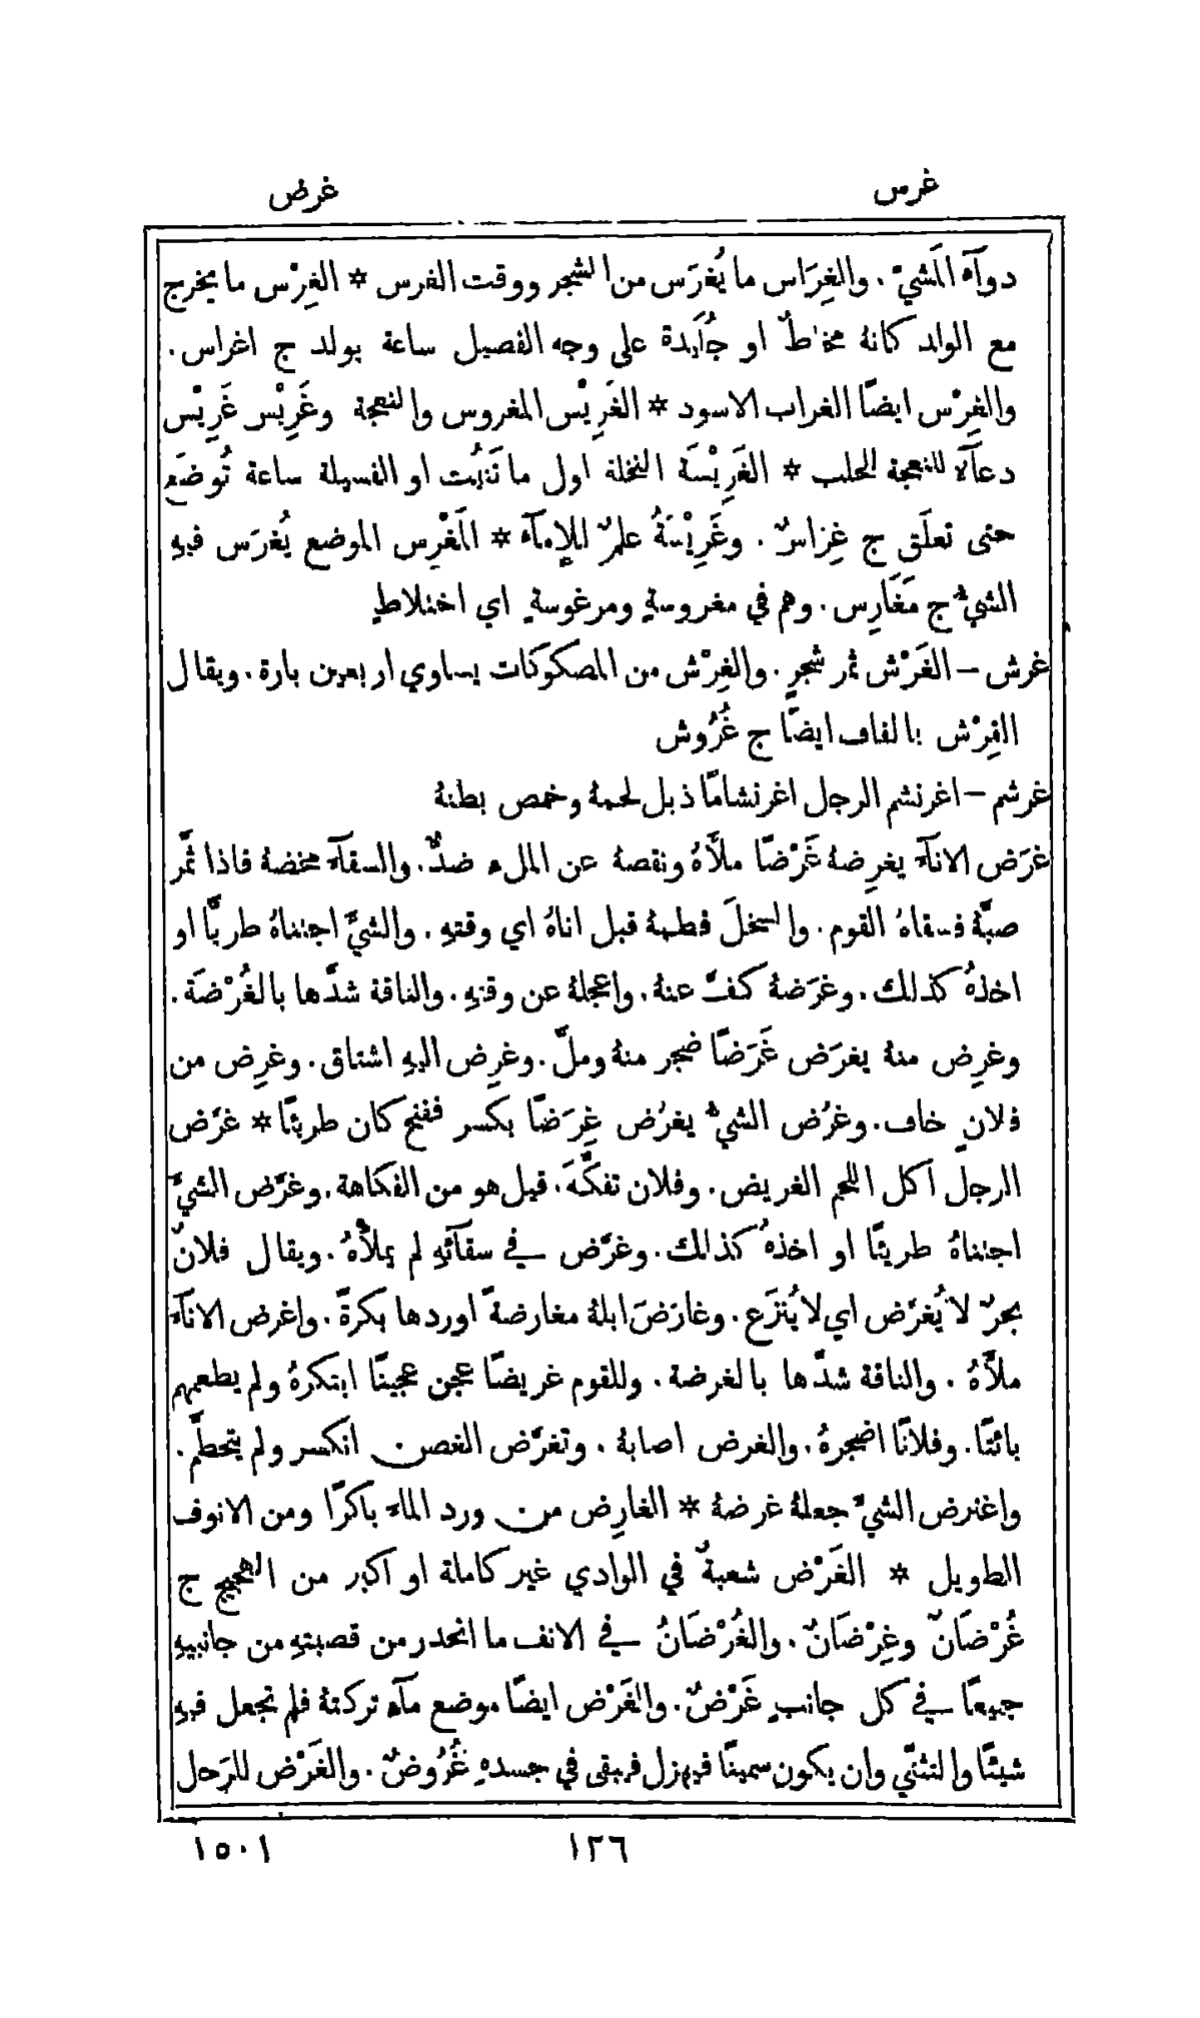 غرس
غرض
دوآء المَشْيّ. والغِرَاس ما يُغرَس من الشجر ووقت الغرس * الغِرْس ما يخرج
مع الولد كانهُ مخاطٌ او جُلَيدة على وجه الفصيل ساعة يولد ج اغراس.
والغِرْس ايضًا الغراب الاسود * الغَرِيْس المغروس والنعجة وغَرِيْس غَرِيْس
دعآء للنعجة للحلب * الغَرِيْسَة النخلة اول ما تَنبُت او الفسيلة ساعة تُوضَع
حتى تعلَق ج غِراسٌ. وغَرِيْسَةُ علمٌ للإمآء * المَغْرِس الموضع يُغرَس فيهِ
الشيُّ ج مَغَارِس. وهم في مغروسةٍ ومرغوسةٍ اي اختلاطٍ
غرش – الغَرْش ثمر شجرٍ. والغِرْش من المصكوكات يساوي اربعين بارة. ويقال
القِرْش بالقاف ايضًا ج غُرُوش
غرشم – اغرنشم الرجل اغرنشامًا ذبل لحمهُ وخمص بطنهُ
غرَض الانآء يغرِضهُ غَرْضًا ملأَهُ ونقصهُ عن الملء ضدٌّ. والسقآء مخضهُ فاذا ثمَّر
صبَّهُ فسقاهُ القوم. والسخلَ فطمهُ قبل اناهُ اي وقتهِ. والشيَّ اجتناهُ طريًّا او
اخذهُ كذلك. وغرَضهُ كفَّ عنهُ. واعجلهُ عن وقتهِ. والناقة شدَّها بالغُرْضَة.
وغرِض منهُ يغرَض غَرَضًا ضجر منهُ وملَّ. وغرِض اليهِ اشتاق. وغرِض من
فلانٍ خاف. وغرُض الشيُّ يغرُض غِرَضًا بكسر ففتح كان طريئًا * غرَّض
الرجل اكل اللحم الغريض. وفلان تفكَّهَ. قيل هو من الفكاهة. وغرَّض الشيَّ
اجتناهُ طريئًا او اخذهُ كذلك. وغرَّض في سقآئهِ لم يملأْهُ. ويقال فلانٌ
بحرٌ لا يُغرَّض اي لا يُنزَع. وغارَضَ ابلهُ مغارضةً اوردها بكرةً. واغرض الانآء
ملأَهُ. والناقة شدَّها بالغرضة. وللقوم غريضًا عجن عجينًا ابتكرهُ ولم يطعمهم
بائتًا. وفلانًا اضجرهُ. والغرض اصابهُ. وتغرَّض الغصن انكسر ولم يتحطَّم.
واغترض الشيَّ جعلهُ غرضهُ * الغارِض من ورد المآء باكرًا ومن الانوف
الطويل * الغَرْض شعبةٌ في الوادي غير كاملة او اكبر من الهجيج ج
غُرْضَانٌ وغِرْضَانٌ. والغُرْضَانُ في الانف ما انحدر من قصبتهِ من جانبيهِ
جميعًا في كل جانبٍ غَرْضٌ. والغَرْض ايضًا موضع مآء تركتهُ فلم تجعل فيهِ
شيئًا والتثنّي وان يكون سمينًا فيهزل فيبقى في جسدهِ غُرُوضٌ. والغَرْض للرَحل
١٢٦
١٥٠١